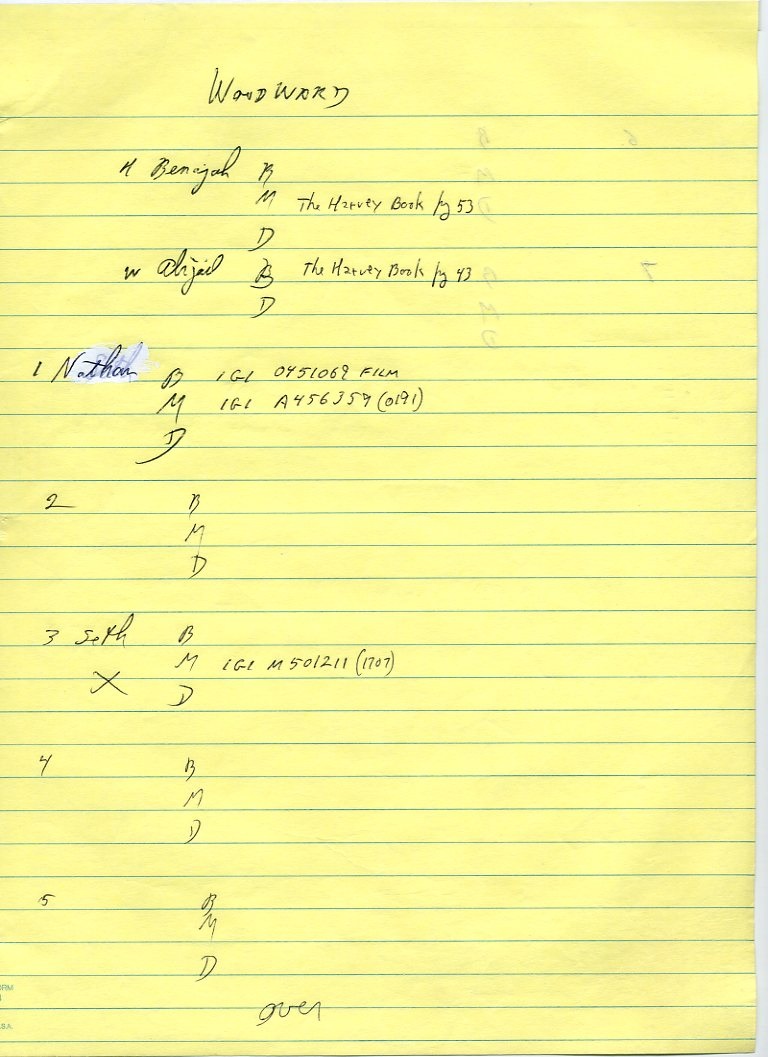 WOODWARD
H Benajah B
M The Harvey Book pg 53
D
W Abijail B The Harvey Book pg 43
D
1 Nathan B IGI 0451069 FILM
M IGI A456359 (0191)
D
2 B
M
D
3 Seth B
X M IGI M501211 (1707)
D
4 B
M
D
5 B
M
D
over
ORM
S.A.